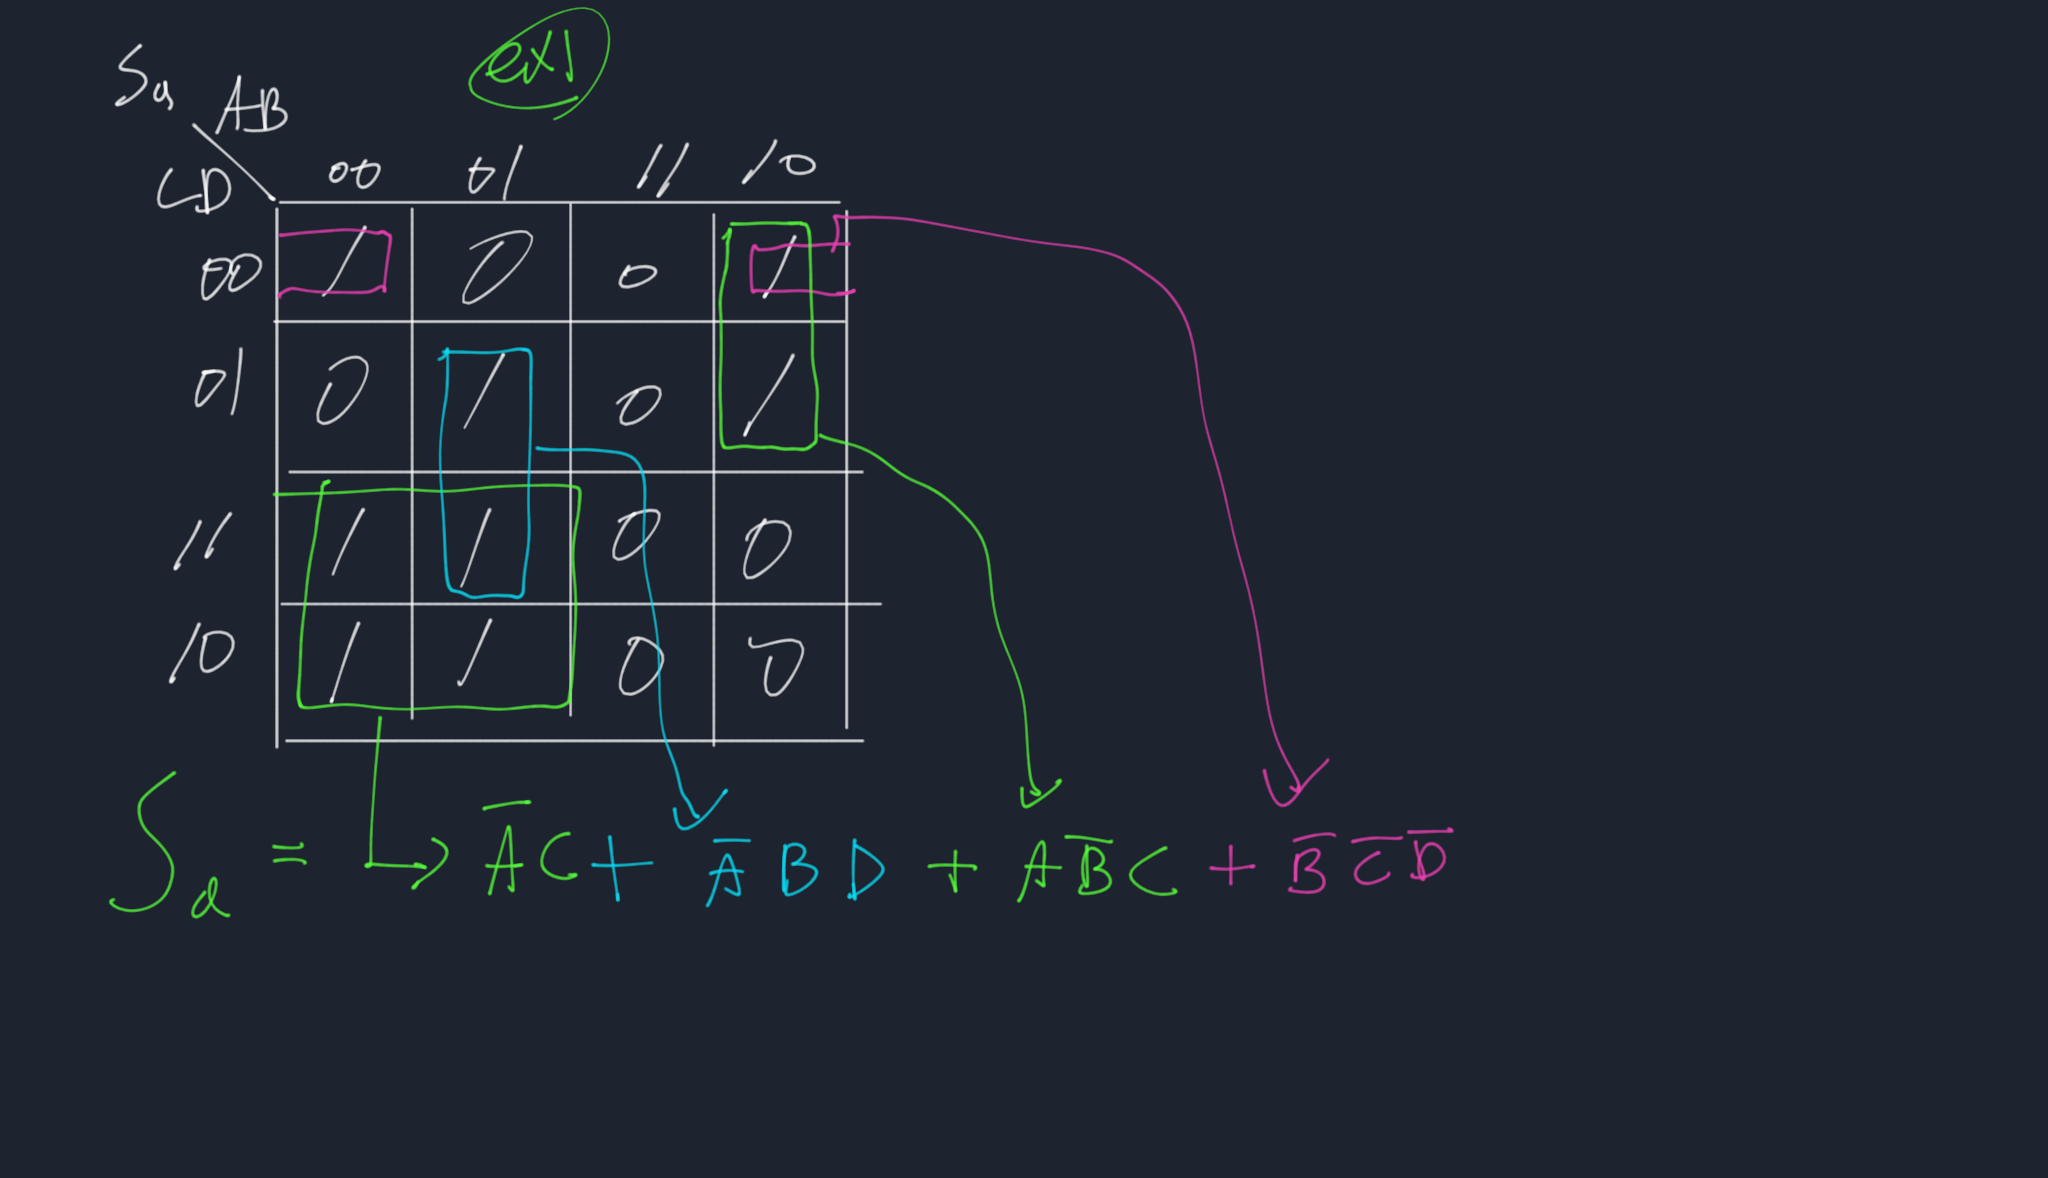 ex1
Sa AB
CD 00 01 11 10
00 1 0 0 1
01 0 1 0 1
11 1 1 0 0
10 1 1 0 0
Sa = → A̅C + A̅BD + AB̅C + B̅C̅D̅